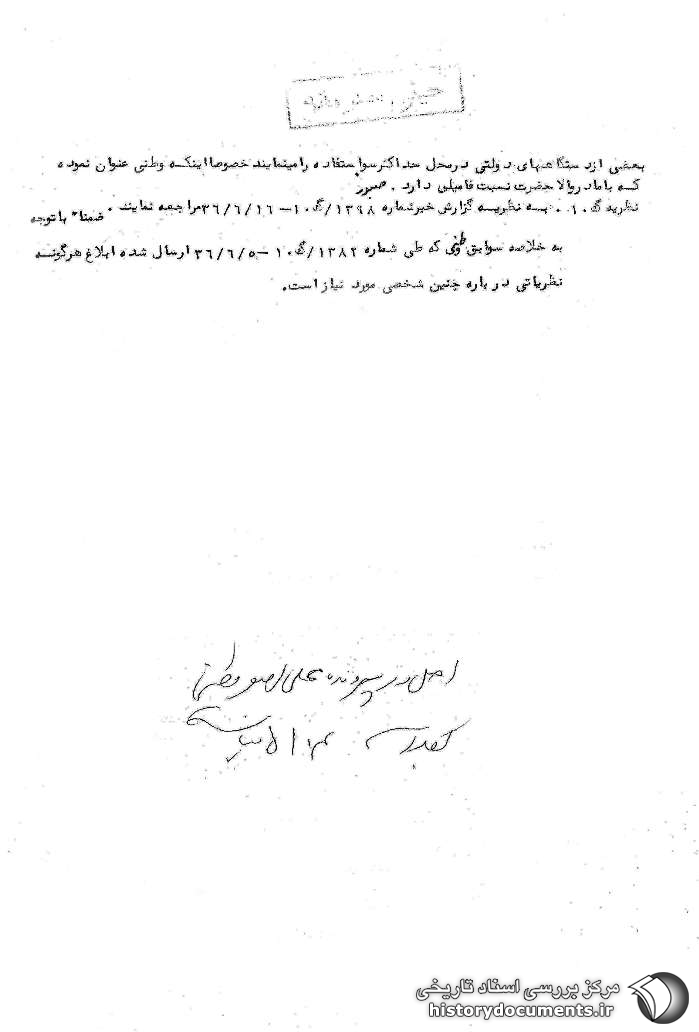 خیلی محرمانه
بعضی از دستگاههای دولتی در محل حداکثر سوا ستفاده را مینمایند خصوصا اینکه وطنی عنوان نموده
که با مادر والا حضرت نسبت فامیلی دارد . صبور
نظریه گ ۱۰ . به نظریه گزارش خبر شماره ۱۳۹۸/گ۱۰ – ۳۶/۶/۱۶ مراجعه نمایند . ضمنا" با توجه
به خلاصه سوابق وطنی که طی شماره ۱۳۸۲/گ۱۰ – ۳۶/۶/۵ ارسال شده ابلاغ هرگونه
نظریاتی در باره چنین شخصی مورد نیاز است.
اصل در پرونده علی اصغر وطنی
مرکز بررسی اسناد تاریخی
historydocuments.ir